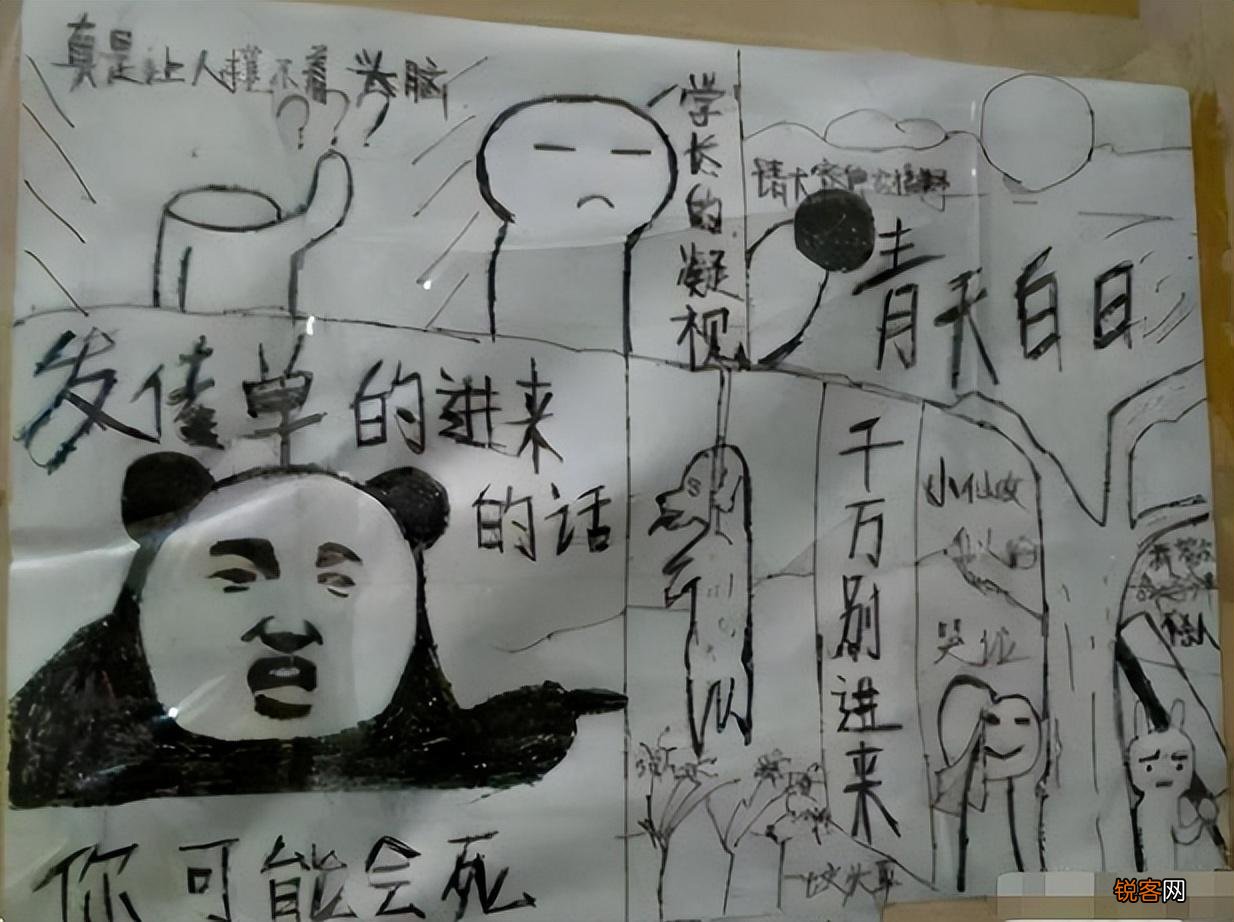 真是让人摸不着头脑
???
学长的凝视
请大家
青天白日
发传单的进来
的话
你可能会死
千万别进来
小仙女
哭泣
锐客网